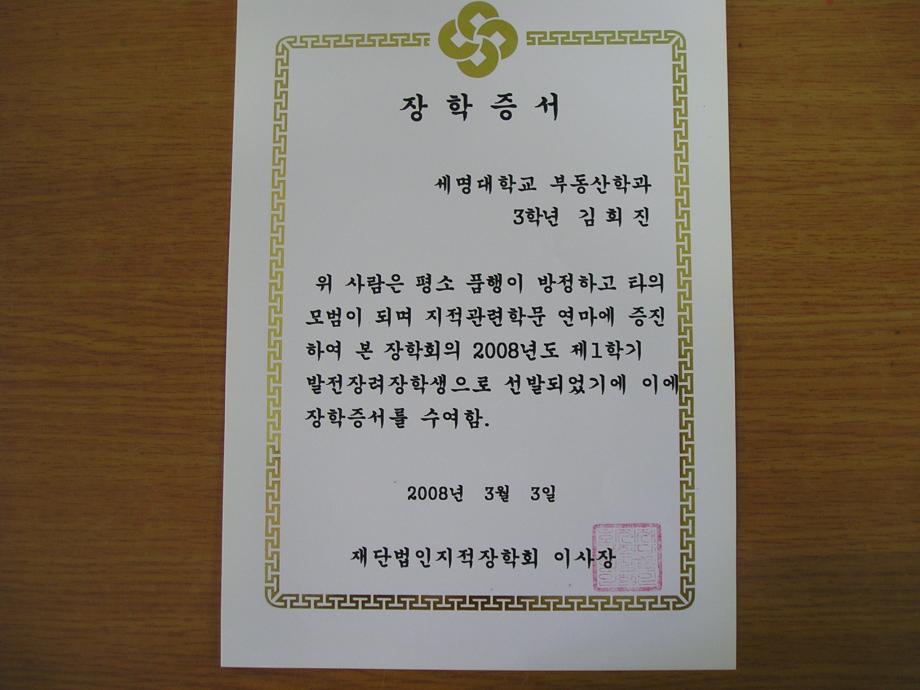 장학증서
세명대학교 부동산학과
3학년 김희진
위 사람은 평소 품행이 방정하고 타의
모범이 되며 지적관련학문 연마에 증진
하여 본 장학회의 2008년도 제1학기
발전장려장학생으로 선발되었기에 이에
장학증서를 수여함.
2008년 3월 3일
재단법인지적장학회 이사장